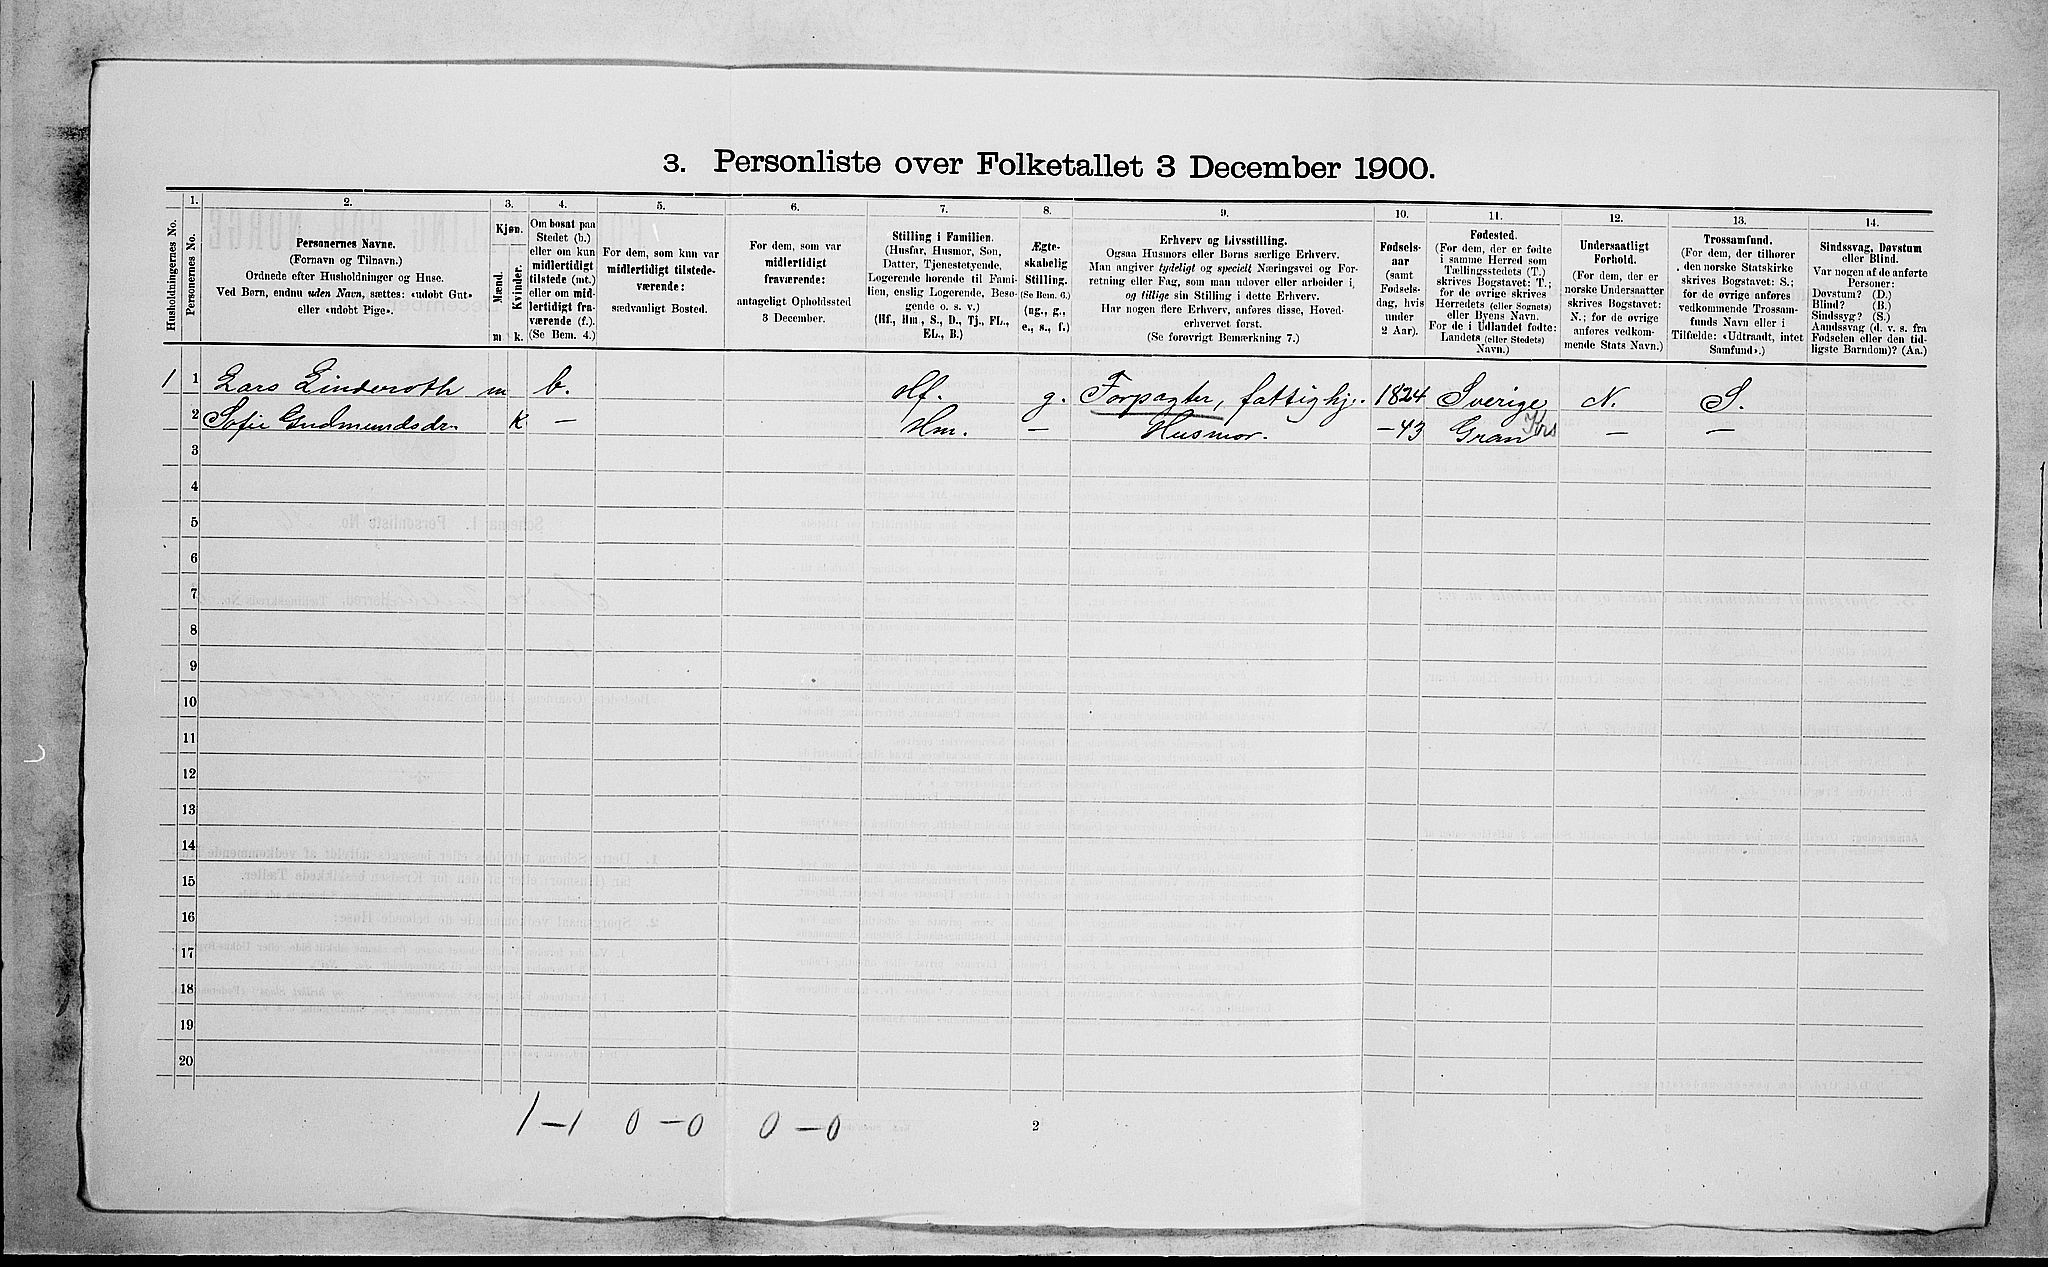 3. Personliste over Folketallet 3 December 1900.
Husholdningernes No.
1.
Personernes No.
2.
Personernes Navne.
(Fornavn og Tilnavn.)
Ordnede efter Husholdninger og Huse.
Ved Børn, endnu uden Navn, sættes: «udøbt Gut»
eller «udøbt Pige».
3.
Kjøn.
Mænd.
Kvinder.
m
k.
4.
Om bosat paa
Stedet (b.)
eller om kun
midlertidigt
tilstede (mt.)
eller om mid-
lertidigt fra-
værende (f.).
(Se Bem. 4.)
5.
For dem, som kun var
midlertidigt tilstede-
værende:
sædvanligt Bosted.
6.
For dem, som var
midlertidigt
fraværende:
antageligt Opholdssted
3 December.
7.
Stilling i Familien.
(Husfar, Husmor, Søn,
Datter, Tjenestetyende,
Logerende hørende til Fami-
lien, enslig Logerende, Besø-
gende o. s. v.)
(Hf., Hm., S., D., Tj., FL.,
EL., B.)
8.
Ægte-
skabelig
Stilling.
(Se Bem. 6.)
(ug., g.,
e., s., f.)
9.
Erhverv og Livsstilling.
Ogsaa Husmors eller Børns særlige Erhverv.
Man angiver tydeligt og specielt Næringsvei og For-
retning eller Fag, som man udøver eller arbeider i,
og tillige sin Stilling i dette Erhverv.
Har nogen flere Erhverv, anføres disse, Hoved-
erhvervet først.
(Se forøvrigt Bemærkning 7.)
10.
Fødsels-
aar
(samt
Fødsels-
dag, hvis
under
2 Aar).
11.
Fødested.
(For dem, der er fødte
i samme Herred som
Tællingsstedets (T.)
skrives Bogstavet: T.;
for de øvrige skrives
Herredets (eller Sognets)
eller Byens Navn.
For de i Udlandet fødte:
Landets (eller Stedets)
Navn.)
12.
Undersaatligt
Forhold.
(For dem, der er
norske Undersaatter
skrives Bogstavet:
N.; for de øvrige
anføres vedkom-
mende Stats Navn.)
13.
Trossamfund.
(For dem, der tilhører
den norske Statskirke
skrives Bogstavet: S.;
for de øvrige anføres
vedkommende Trossam-
funds Navn eller i
Tilfælde: «Udtraadt, intet
Samfund».)
14.
Sindssvag, Døvstum
eller Blind.
Var nogen af de anførte
Personer:
Døvstum? (D.)
Blind? (B.)
Sindssyg? (S.)
Aandssvag (d. v. s. fra
Fødselen eller den tid-
ligste Barndom)? (Aa.)
1 1 Lars Linderoth m b. Hf. g. Forpagter, fattighj. 1824 Sverige N. S.
2 Sofie Gudmundsdr. K — Hm. — Husmor. —43 Gran Krs — —
3
4
5
6
7
8
9
10
11
12
13
14
15
16
17
18
19
20
1—1 0—0 0—0
2